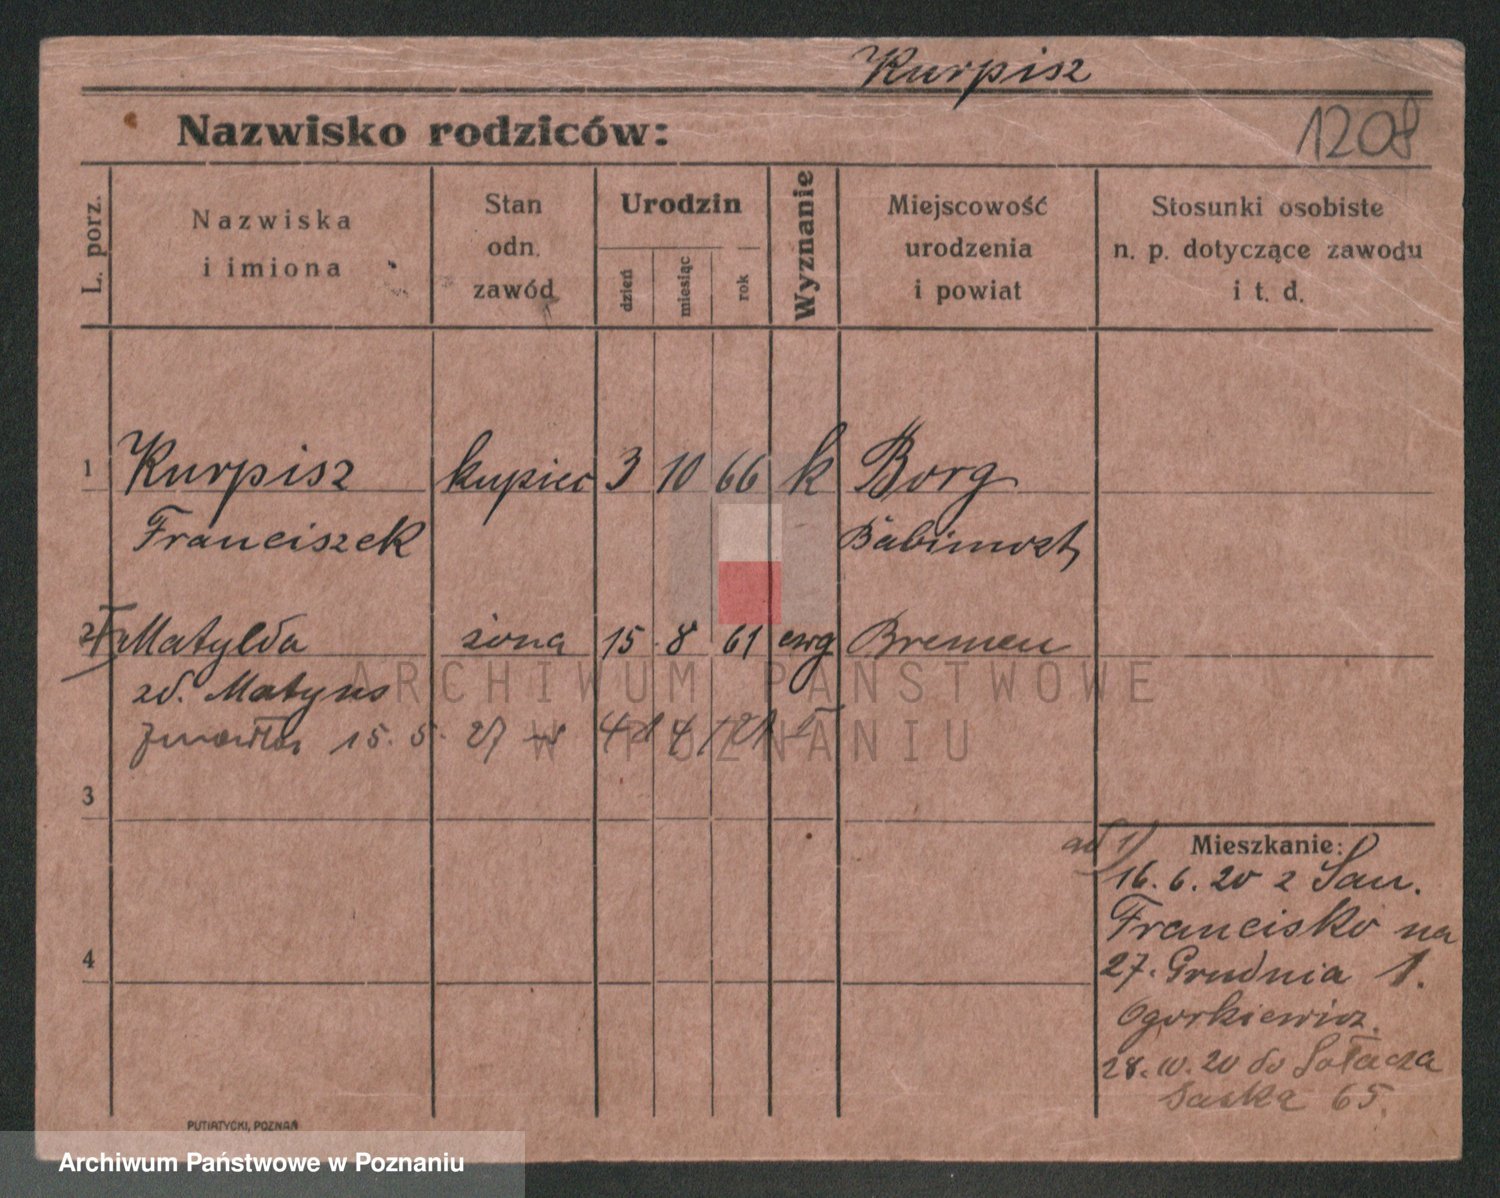 Kurpisz
Nazwisko rodziców:
1208
L. porz.
Nazwiska
i imiona
Stan
odn.
zawód
Urodzin
dzień
miesiąc
rok
Wyznanie
Miejscowość
urodzenia
i powiat
Stosunki osobiste
n. p. dotyczące zawodu
i t. d.
1 Kurpisz kupiec 3 10 66 k Borg
Franciszek Babimost
2 Matylda żona 15 8 61 ewg Bremen
zd. Matyns
zmarła 15. 5. 27
ARCHIWUM PAŃSTWOWE
W POZNANIU
3
ad 1) Mieszkanie:
16. 6. 20 z San.
Francisko na
4
27. Grudnia 1.
Ogorkiewicz.
28. 10. 20 do Sołacza
Saska 65.
PUTIATYCKI, POZNAŃ
Archiwum Państwowe w Poznaniu